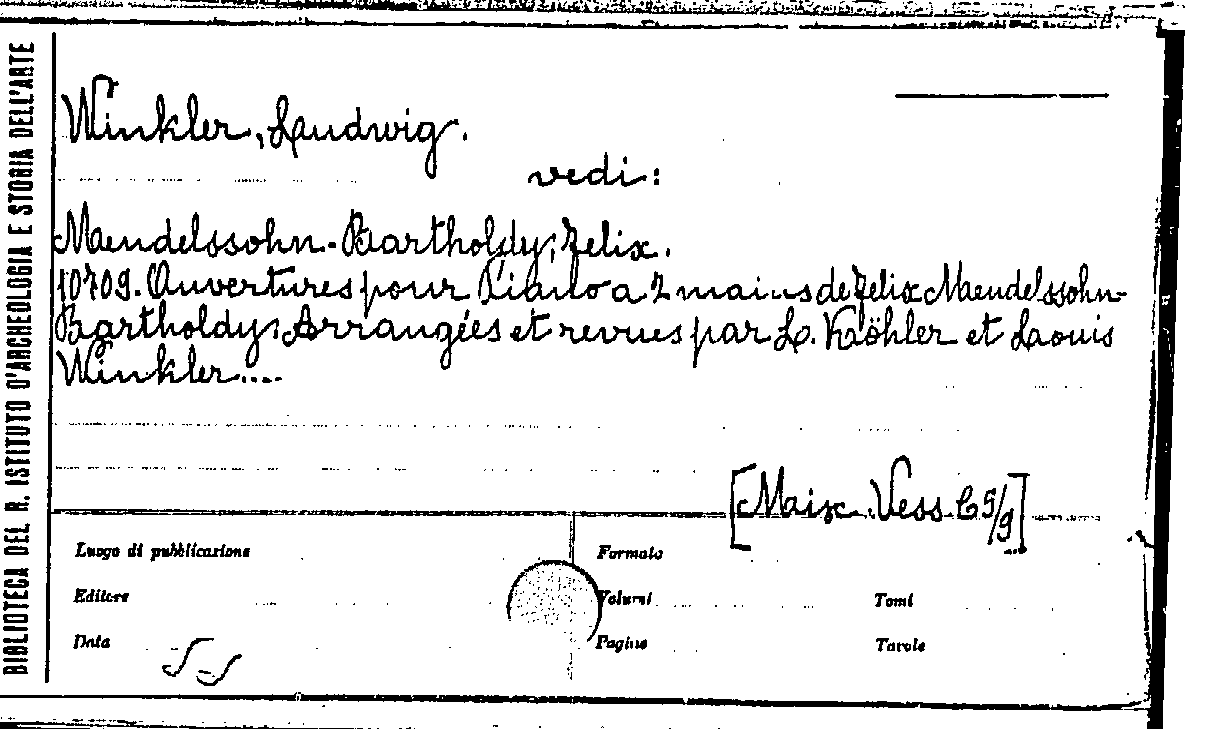 BIBLIOTECA DEL R. ISTITUTO D'ARCHEOLOGIA E STORIA DELL'ARTE
Winkler, Laudwig.
vedi:
Maendelssohn-Bartholdy, Felix.
10709. Ouvertures pour Piano a 2 mains de Felix Maendelssohn-
Bartholdy. Arrangées et revues par L. Köhler et Laouis
Winkler....
[Maix Vess C 5/9]
Luogo di pubblicazione
Formato
Editore
Volumi
Tomi
Data
Pagine
Tavole